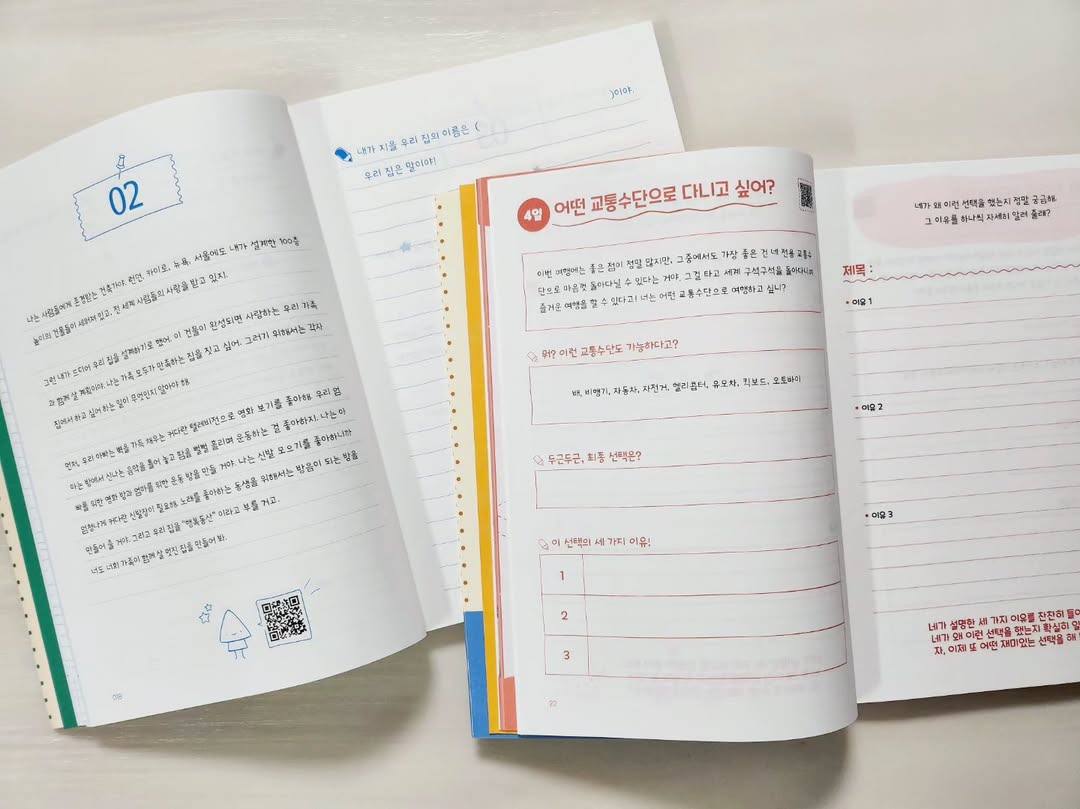 02
나는 사람들에게 존경받는 건축가야. 런던, 카이로, 뉴욕, 서울에도 내가 설계한 100층
높이의 건물들이 세워져 있고, 전 세계 사람들의 사랑을 받고 있지.
그런 내가 드디어 우리 집을 설계하기로 했어. 이 건물이 완성되면 사랑하는 우리 가족
과 함께 살 계획이야. 나는 가족 모두가 만족하는 집을 짓고 싶어. 그러기 위해서는 각자
집에서 하고 싶어 하는 일이 무엇인지 알아야 해.
먼저, 우리 아빠는 벽을 가득 채우는 커다란 텔레비전으로 영화 보기를 좋아해. 우리 엄
마는 방에서 신나는 음악을 틀어 놓고 땀을 뻘뻘 흘리며 운동하는 걸 좋아하지. 나는 아
빠를 위한 영화 방과 엄마를 위한 운동 방을 만들 거야. 나는 신발 모으기를 좋아하니까
엄청나게 커다란 신발장이 필요해. 노래를 좋아하는 동생을 위해서는 방음이 되는 방을
만들어 줄 거야. 그리고 우리 집을 "행복동산" 이라고 부를 거고.
너도 너희 가족이 함께 살 멋진 집을 만들어 봐.
018
내가 지을 우리 집의 이름은 ( )이야.
우리 집은 말이야!
4일 어떤 교통수단으로 다니고 싶어?
이번 여행에는 좋은 점이 정말 많지만, 그중에서도 가장 좋은 건 네 전용 교통수
단으로 마음껏 돌아다닐 수 있다는 거야. 그걸 타고 세계 구석구석을 돌아다니며
즐거운 여행을 할 수 있다고! 너는 어떤 교통수단으로 여행하고 싶니?
뭐? 이런 교통수단도 가능하다고?
배, 비행기, 자동차, 자전거, 헬리콥터, 유모차, 킥보드, 오토바이
두근두근, 최종 선택은?
이 선택의 세 가지 이유!
1
2
3
22
네가 왜 이런 선택을 했는지 정말 궁금해.
그 이유를 하나씩 자세히 알려 줄래?
제목 :
이유 1
이유 2
이유 3
네가 설명한 세 가지 이유를 찬찬히
네가 왜 이런 선택을 했는지 확실히
자, 이제 또 어떤 재미있는 선택을 해